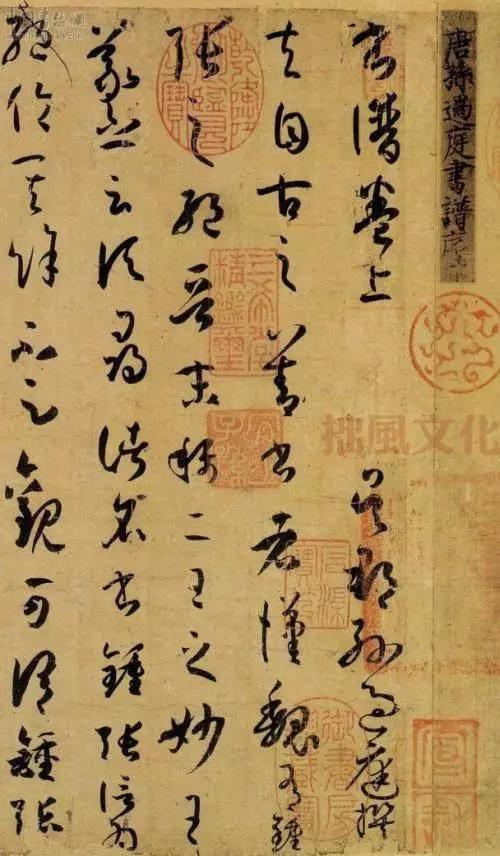 唐孫過庭書譜序
書譜卷上 吳郡孫過庭撰
夫自古之善書者漢魏有鍾
張之絕晉末稱二王之妙王
羲之云頃尋諸名書鍾張信為
絕倫其餘不足觀可謂鍾張
三希堂精鑑璽
宜子孫
拙風文化